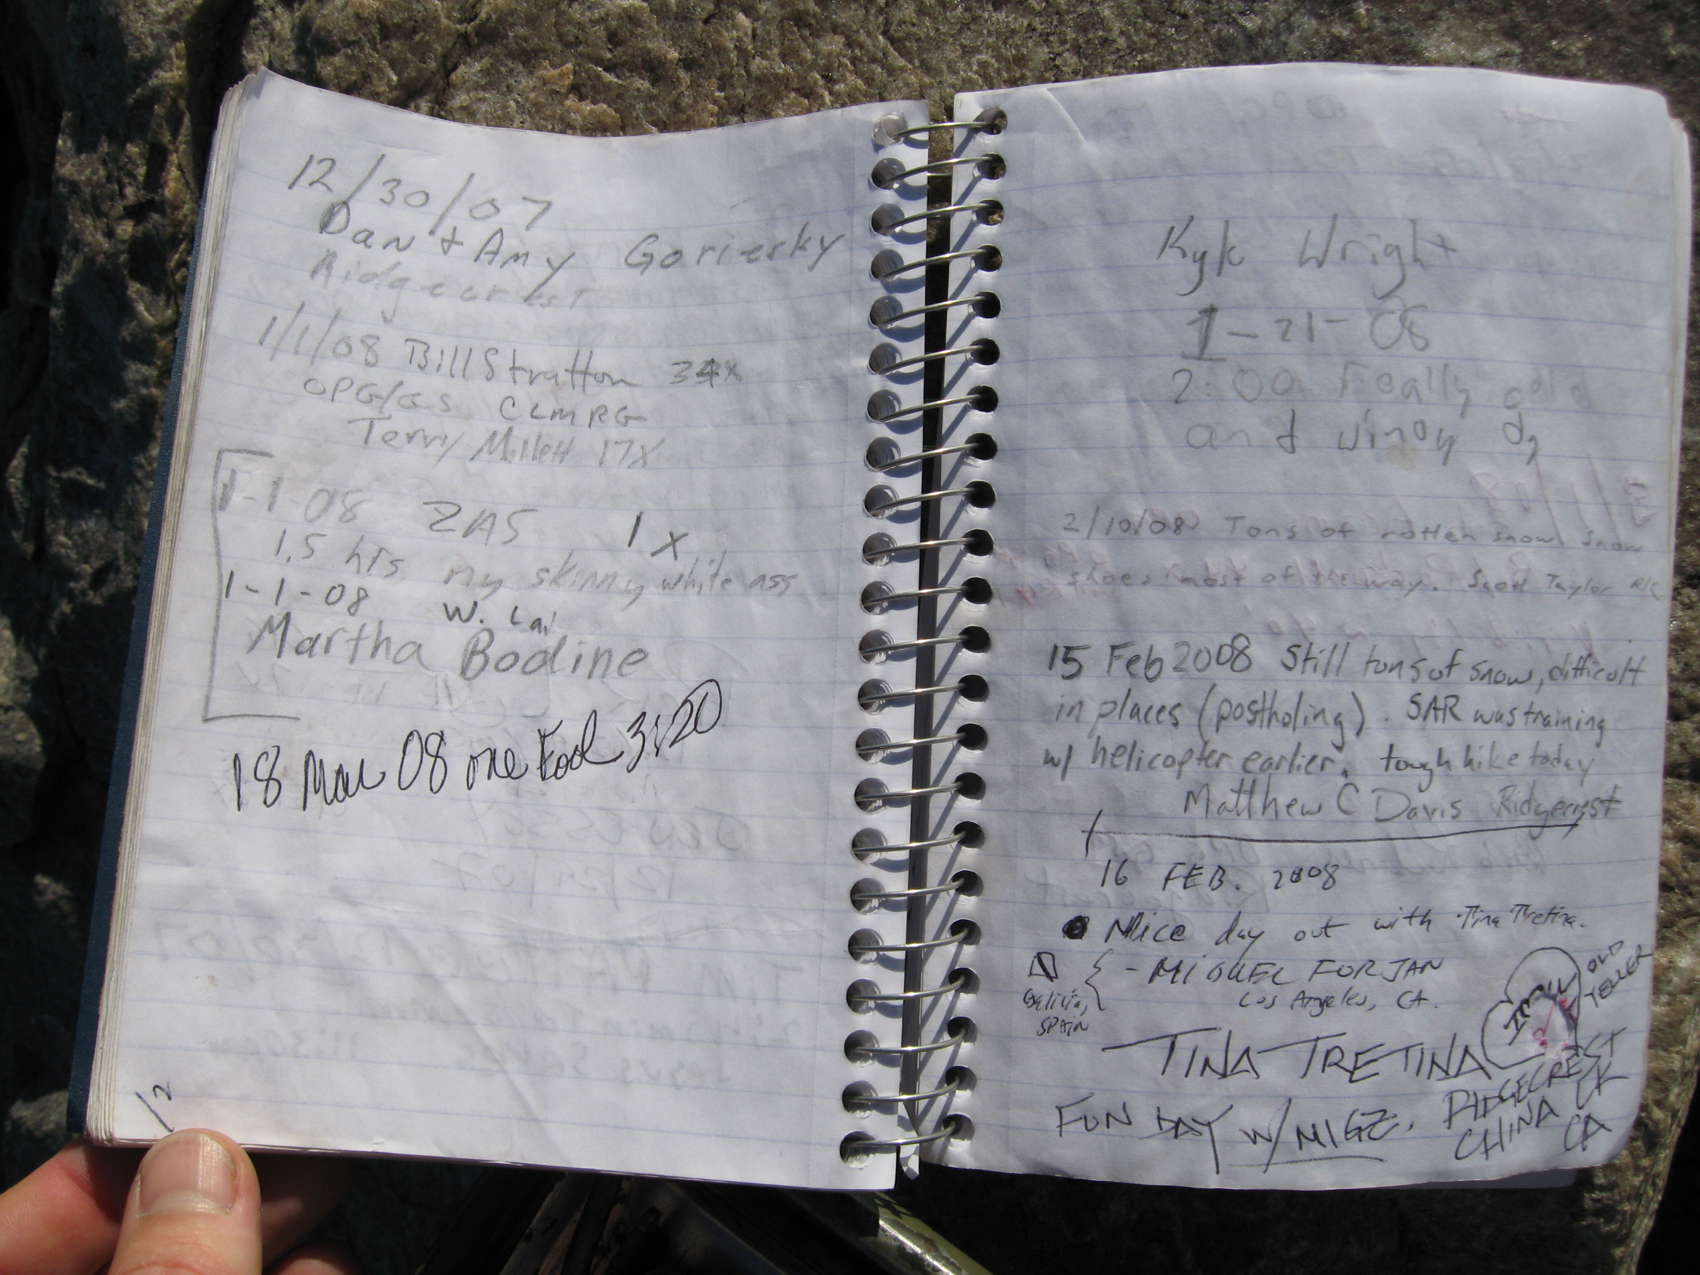 12/30/07
Dan + Amy Goriesky
Ridgecrest
1/1/08 Bill Stratton 34x
OPG/GS CLMRG
Terry Millett 17x
1-1-08 ZAS 1x
1.5 hrs. my skinny white ass
1-1-08 W. Lai
Martha Bodine
18 Mar 08 one Fool 3:20
1/2
Kyle Wright
1-21-08
2:00 really cold
and windy
2/10/08 Tons of rotten snow. Snow
shoes most of the way. Scott Taylor R/C
15 Feb 2008 Still tons of snow, difficult
in places (postholing). SAR was training
w/ helicopter earlier. tough hike today
Matthew C Davis Ridgecrest
16 FEB. 2008
Nice day out with Tina Tretina.
- MIGUEL FORJAN
Los Angeles, CA.
Galicia,
SPAIN
OLD
TELLER
TINA TRETINA
FUN DAY W/ MIGZ.
RIDGECREST
CHINA LK
CA